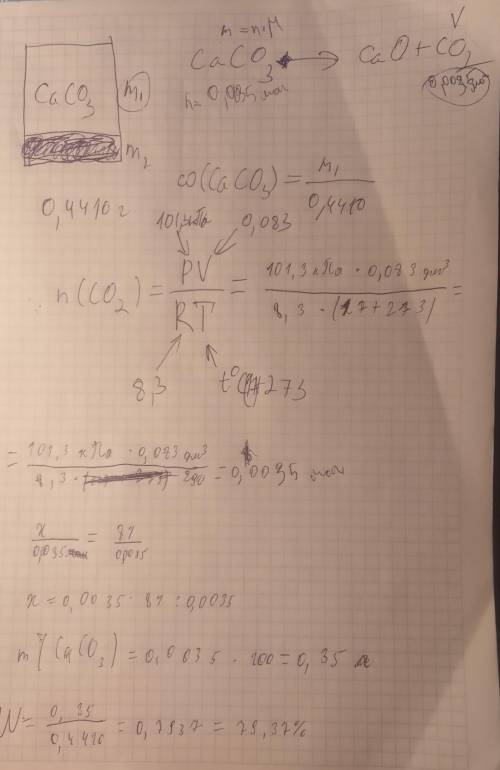 m = n·M
CaCO3 → CaO + CO2
V
n= 0,0035 мол
0,0035
CaCO3
m1
m2
0,4410 г
ω(CaCO3) = m1 / 0,4410
101,3 кПа
0,083
n(CO2) = PV / RT = 101,3 кПа · 0,083 дм³ / 8,3 · (17+273) =
8,3
t°C+273
= 101,3 кПа · 0,083 дм³ / 8,3 · 290 = 0,0035 мол
x / 0,0035 = / 0,0035
x = 0,0035 · : 0,0035
m (CaCO3) = 0,0035 · 100 = 0,35
W = 0,35 / 0,4410 = 0,7937 = 79,37%